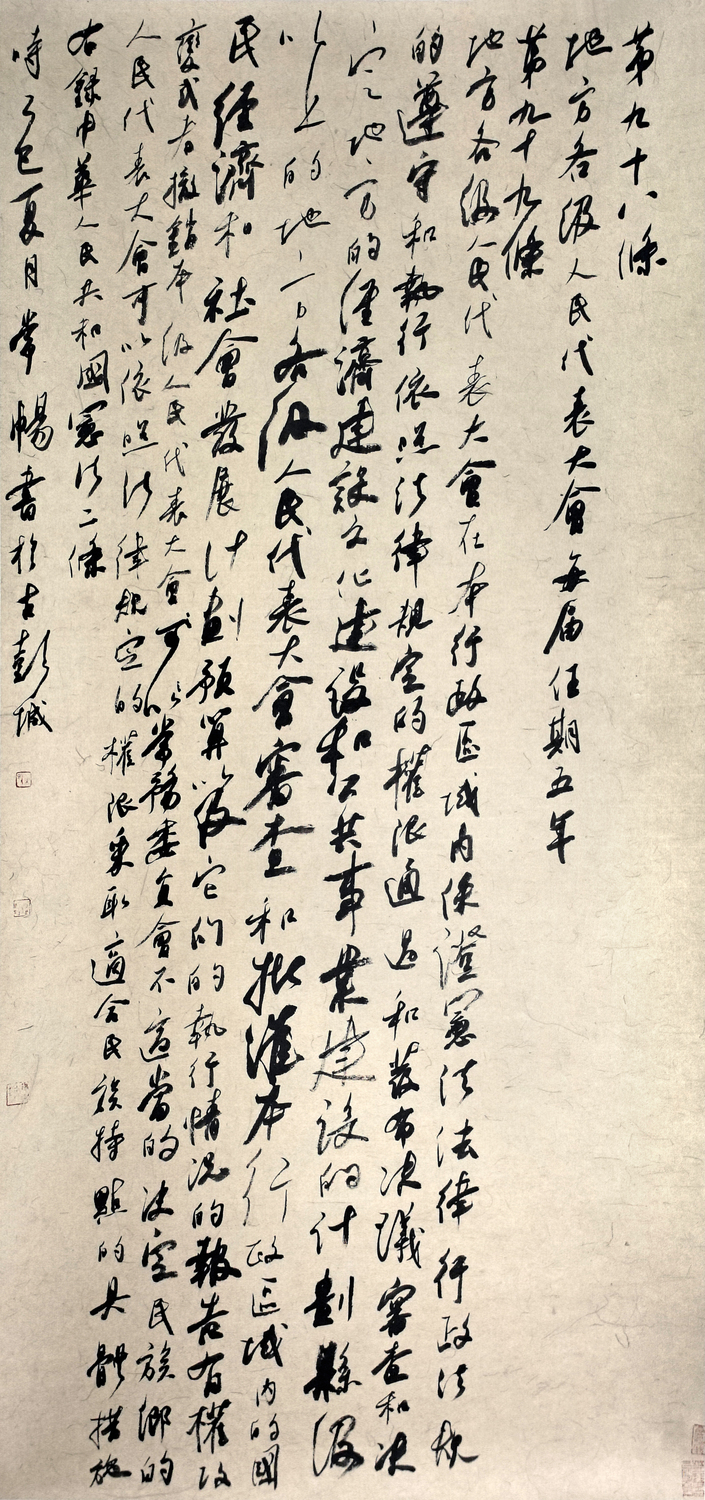 第九十八條
地方各級人民代表大會每届任期五年
第九十九條
地方各級人民代表大會在本行政區域内保證憲法法律行政法規
的遵守和執行依照法律規定的權限通過和發布决議審查和决
定地方的經濟建設文化建設和公共事業建設的计劃縣級
以上的地方各級人民代表大會審查和批准本行政區域内的國
民經濟和社會發展计劃預算以及它们的執行情况的報告有權改
變或者撤銷本級人民代表大會可以常務委員會不適當的决定民族鄉的
人民代表大會可以依照法律規定的權限采取適合民族特點的具體措施
右錄中華人民共和國憲法二條
時乙巳夏月 暢書於古彭城